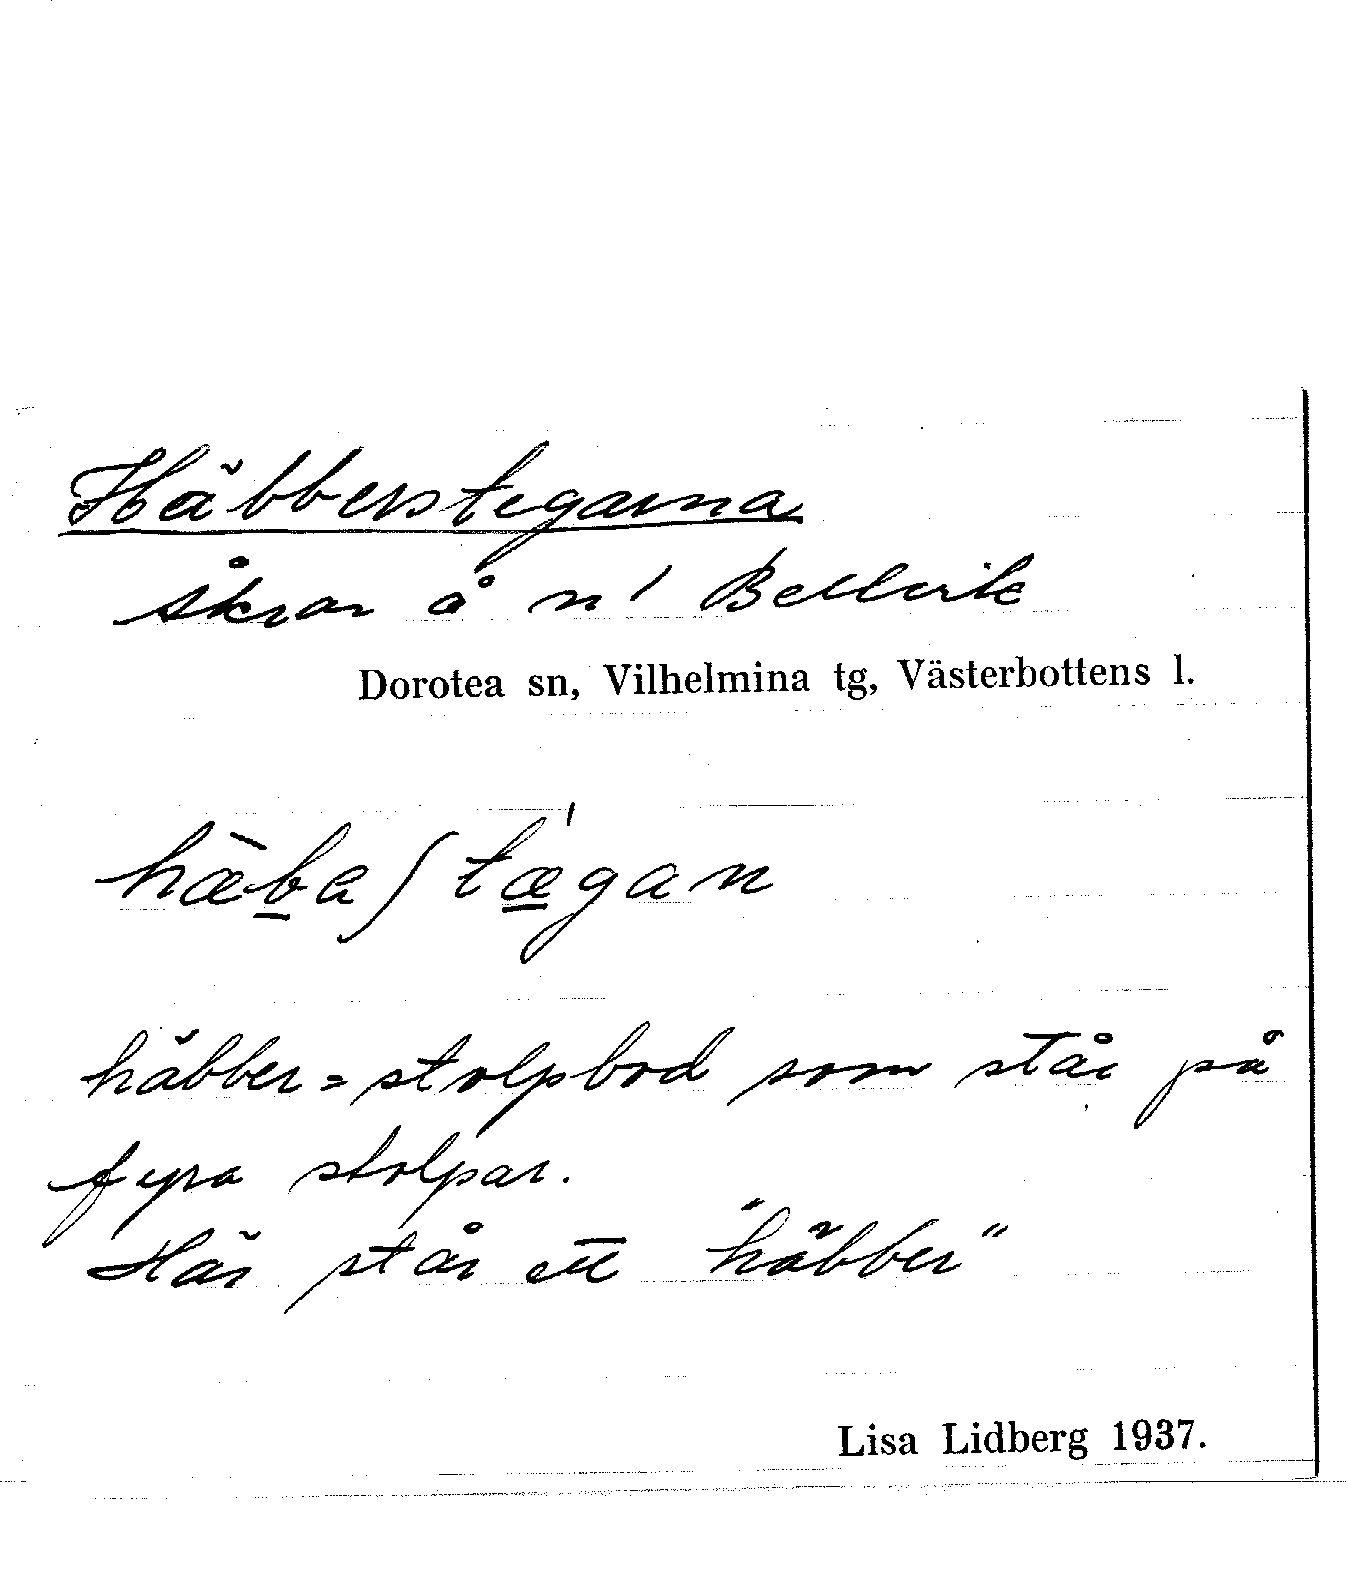 Häbberstegarna
åkrar å n1 Bellvik
Dorotea sn, Vilhelmina tg, Västerbottens l.
hæ̀ba ʃtǽgan
häbber = stolpbod som står på
fyra stolpar.
Här står ett "häbber"
Lisa Lidberg 1937.